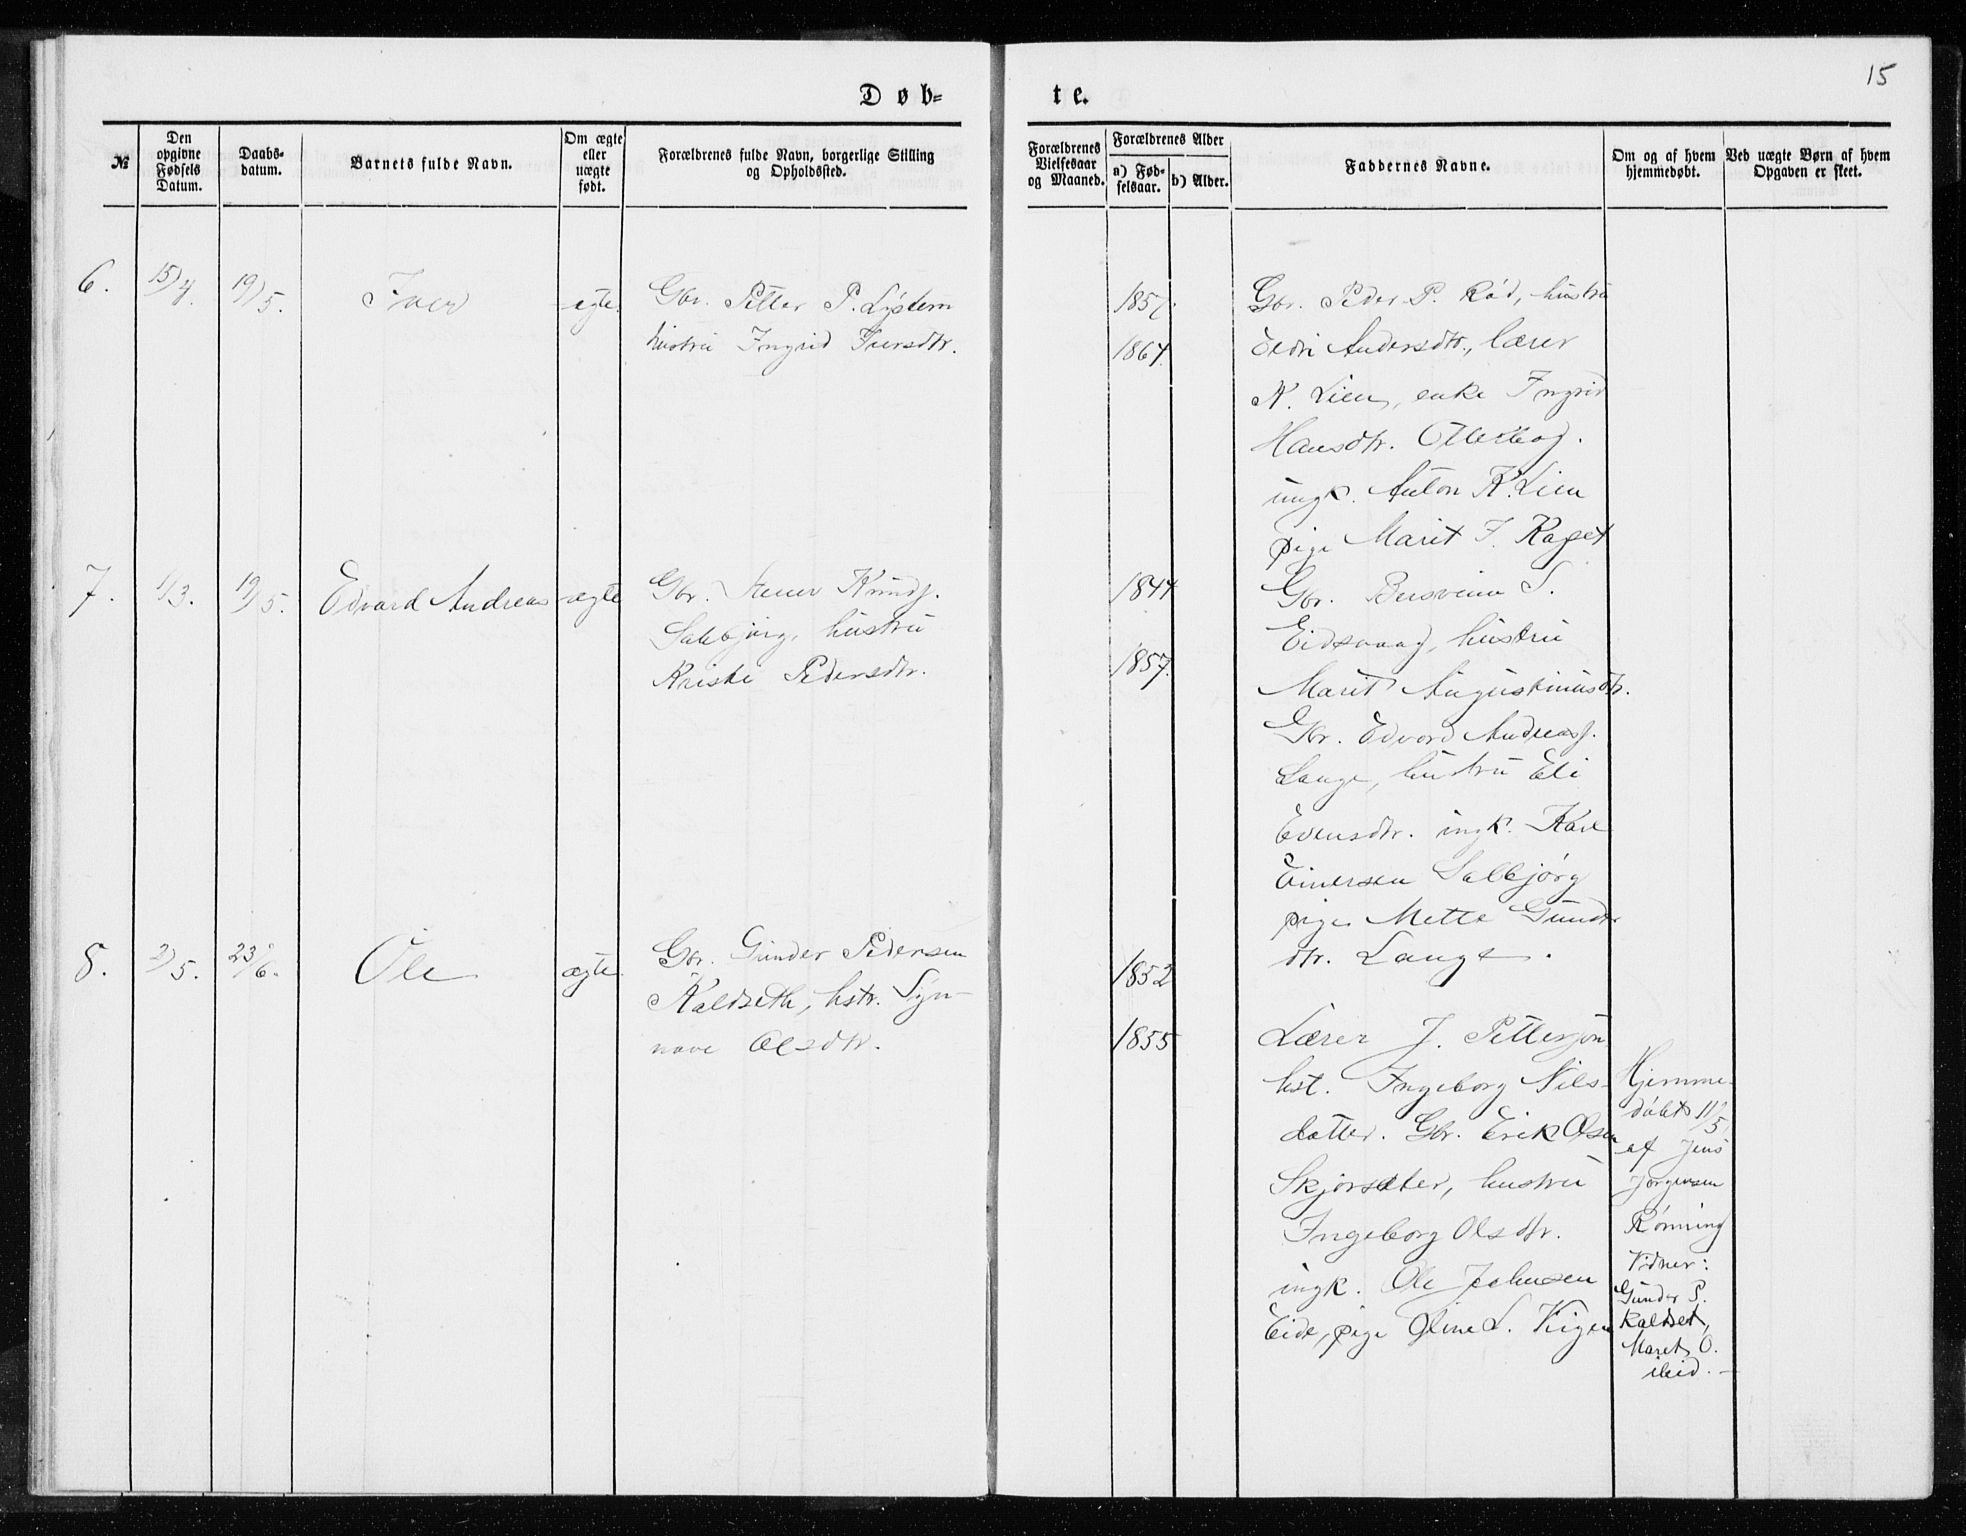 15
Døb-
te.
№
Den opgivne Fødsels Datum.
Daabs-datum.
Barnets fulde Navn.
Om ægte eller uægte født.
Forældrenes fulde Navn, borgerlige Stilling og Opholdssted.
Forældrenes Vielsesaar og Maaned.
Forældrenes Alder
a) Fød-selsaar.
b) Alder.
Faddernes Navne.
Om og af hvem hjemmedøbt.
Ved uægte Børn af hvem Opgaven er skeet.
6.
15/4.
19/5.
Iver
egte.
Gbr. Petter P. Lystem
hustru Ingrid Iversdtr.
1857.
1864
Gbr. Peder P. Rød, hustru
Eldri Andersdtr., lærer
N. Lien, enke Ingrid
Hansdtr.
ungk. Anton K. Lien
pige Marit I.
7.
1/3.
19/5.
Edvard Andreas
ægte
Gbr. Knuds.
Salbjørg, hustru
Kristi Pedersdtr.
1844
1857.
Gbr. Bersvein S.
Eidsvaag, hustru
Marit Augustinusdtr.
Gbr. Edvard Andreas.
Lange, hustru Eli
Evensdtr. ungk. Karl
Einersen Salbjørg
pige Mette Gunder
dtr. Lange.
8.
2/5.
23/6.
Ole
ægte
Gbr. Gunder Pedersen
Kaldseth, hstr. Syn-
nøve Olsdtr.
1852
1855
Lærer J. Petterson
hst. Ingeborg Nils-
datter. Gbr. Erik Olsen
Skjørsæter, hustru
Ingeborg Olsdtr.
ungk. Ole Johnsen
Eide, pige Oline L.
Hjemme-
døbt 11/5
af Jens
Jørgensen
Rønning
Vidner:
Gunder P.
Kaldset,
Maret O.
ibid.